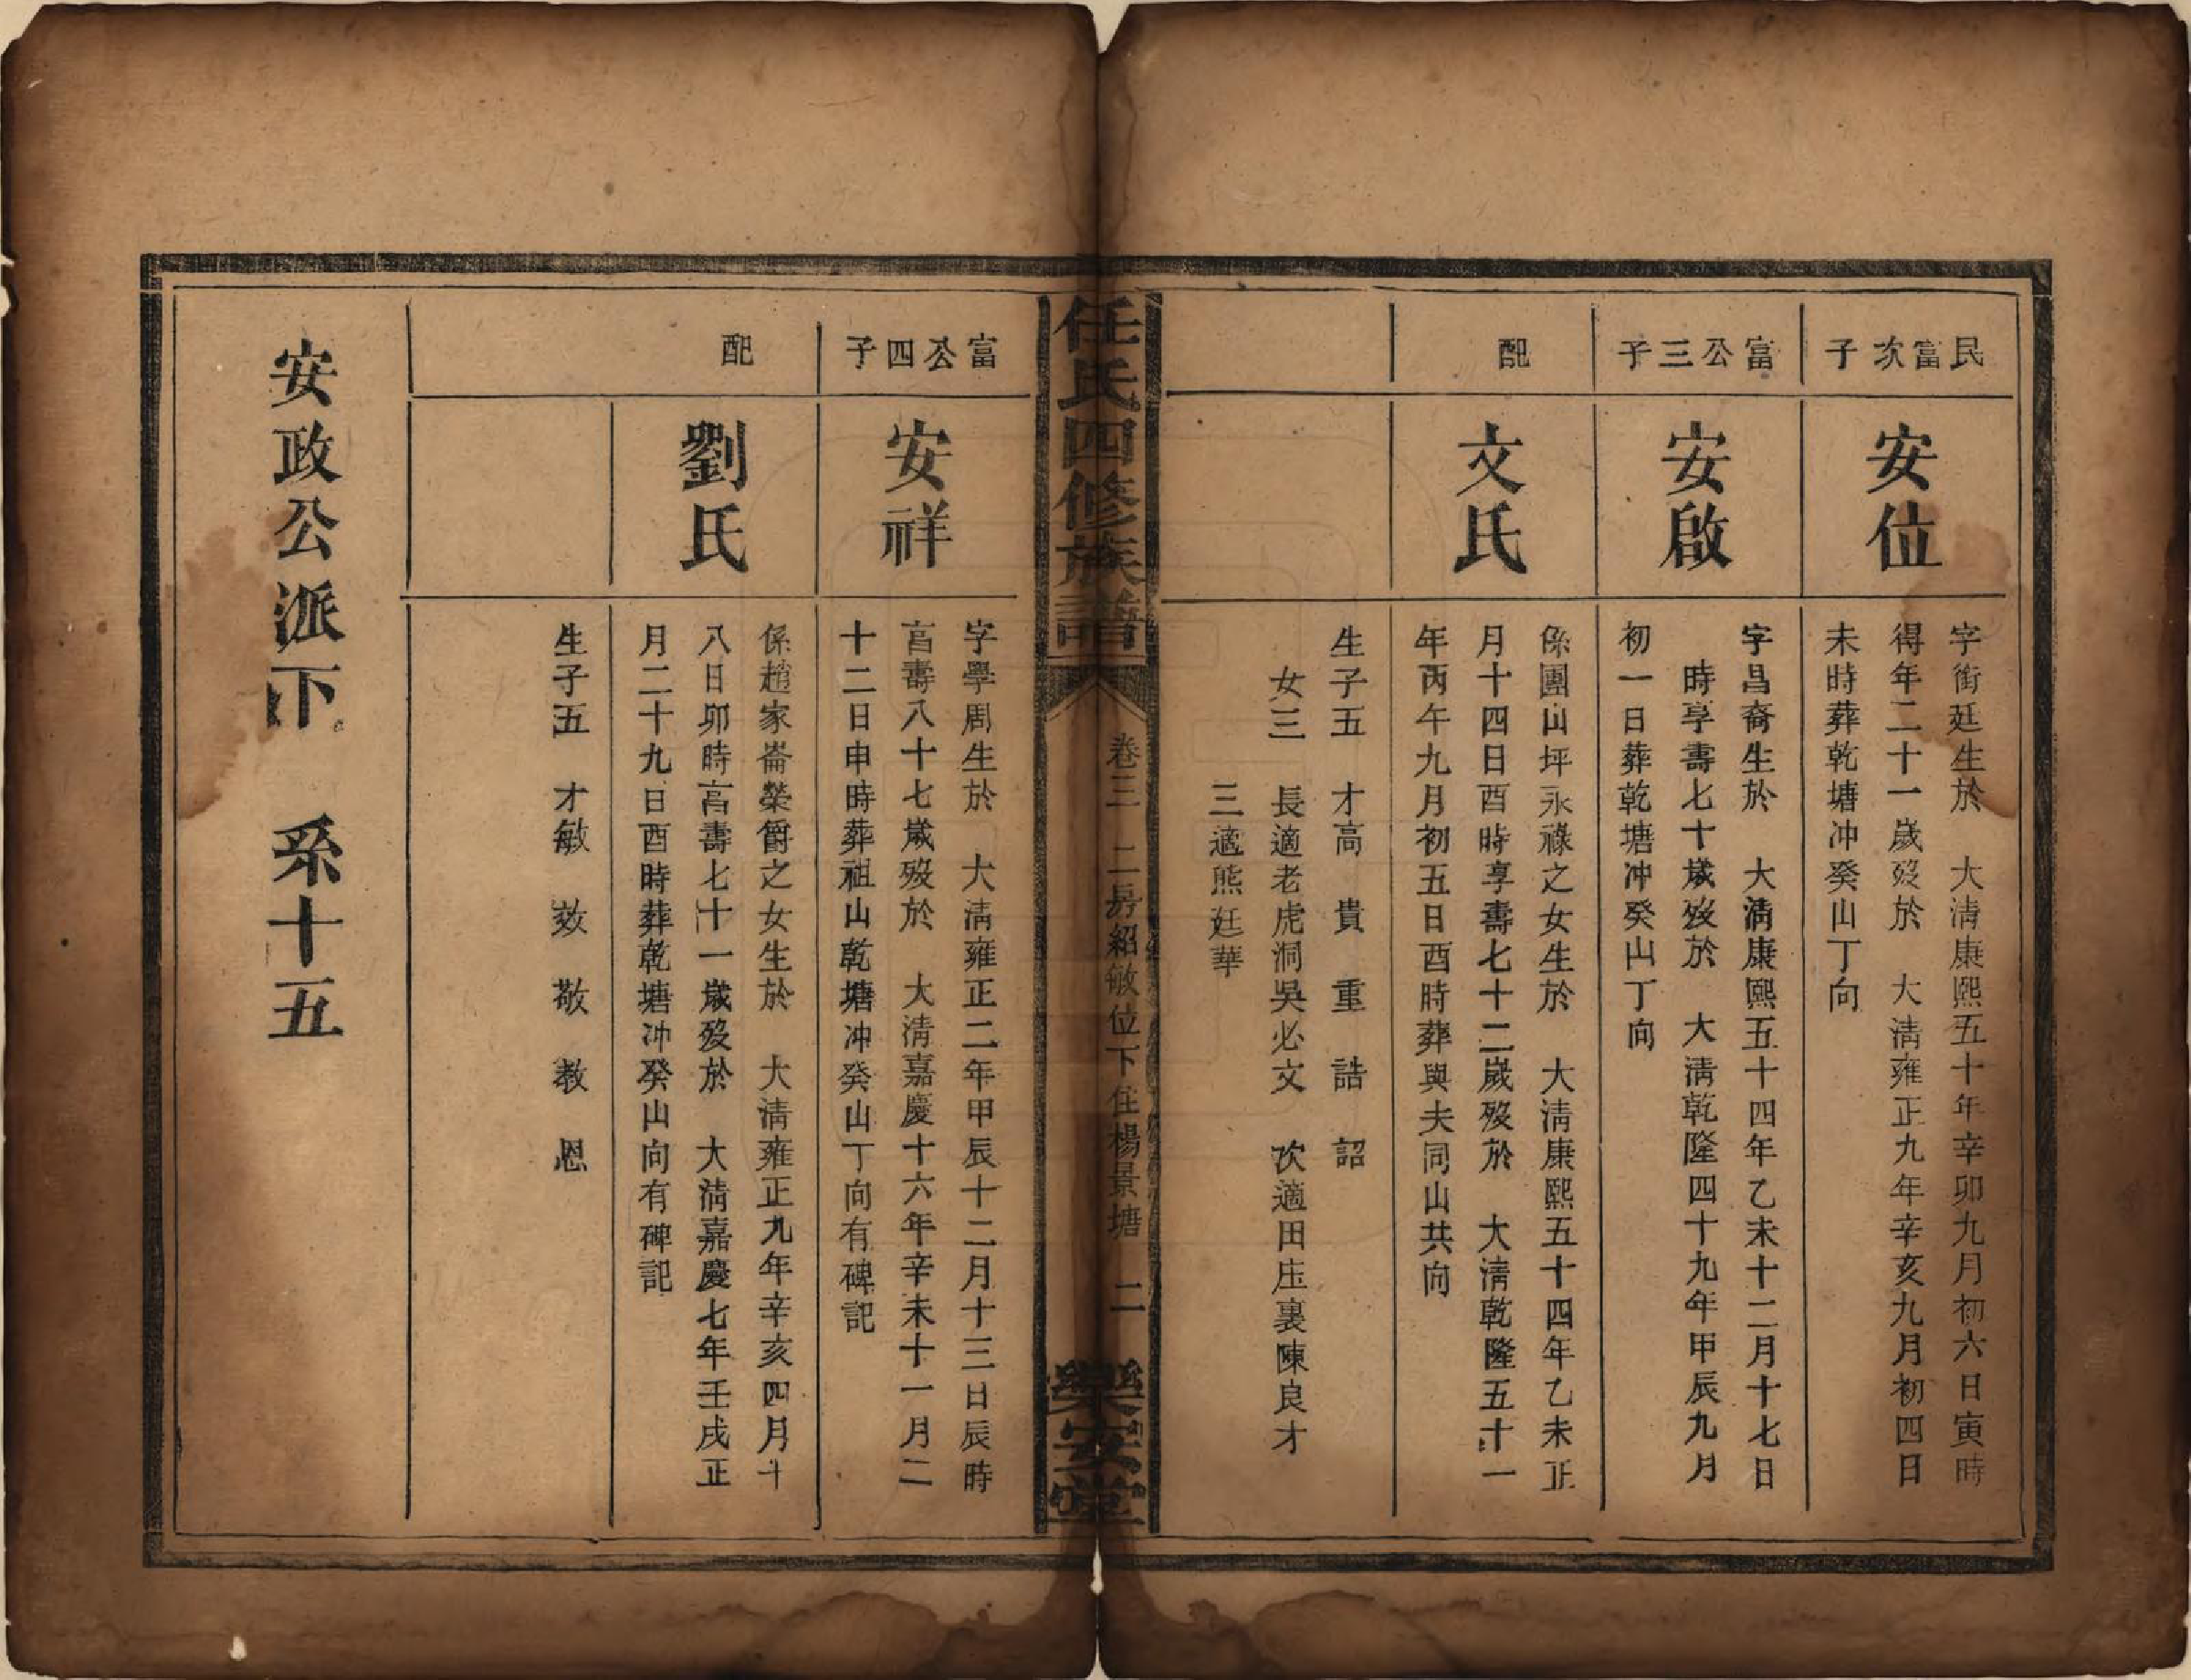 民富次子
安位
字街廷生於　大清康熙五十年辛卯九月初六日寅時
得年二十一歲歿於　大清雍正九年辛亥九月初四日
未時葬乾塘冲癸山丁向
富公三子
安啟
字昌裔生於　大清康熙五十四年乙未十二月十七日
時享壽七十歲歿於　大清乾隆四十九年甲辰九月
初一日葬乾塘冲癸山丁向
配
文氏
係團山坪永祿之女生於　大清康熙五十四年乙未正
月十四日酉時享壽七十二歲歿於　大清乾隆五十一
年丙午九月初五日酉時葬與夫同山共向
生子五　才高　貴　重　誥　詔
女三　長適老虎洞吳必文　次適田庄裏陳良才
三適熊廷華
任氏四修族譜
卷三　二房紹敏位下住楊景塘　二
樂安堂
富公四子
安祥
字學周生於　大清雍正二年甲辰十二月十三日辰時
富壽八十七歲歿於　大清嘉慶十六年辛未十一月二
十二日申時葬祖山乾塘冲癸山丁向有碑記
配
劉氏
係趙家崙榮爵之女生於　大清雍正九年辛亥四月十
八日卯時高壽七十一歲歿於　大清嘉慶七年壬戌正
月二十九日酉時葬乾塘冲癸山向有碑記
生子五　才敏　效　敬　教　恩
安政公派下　系十五